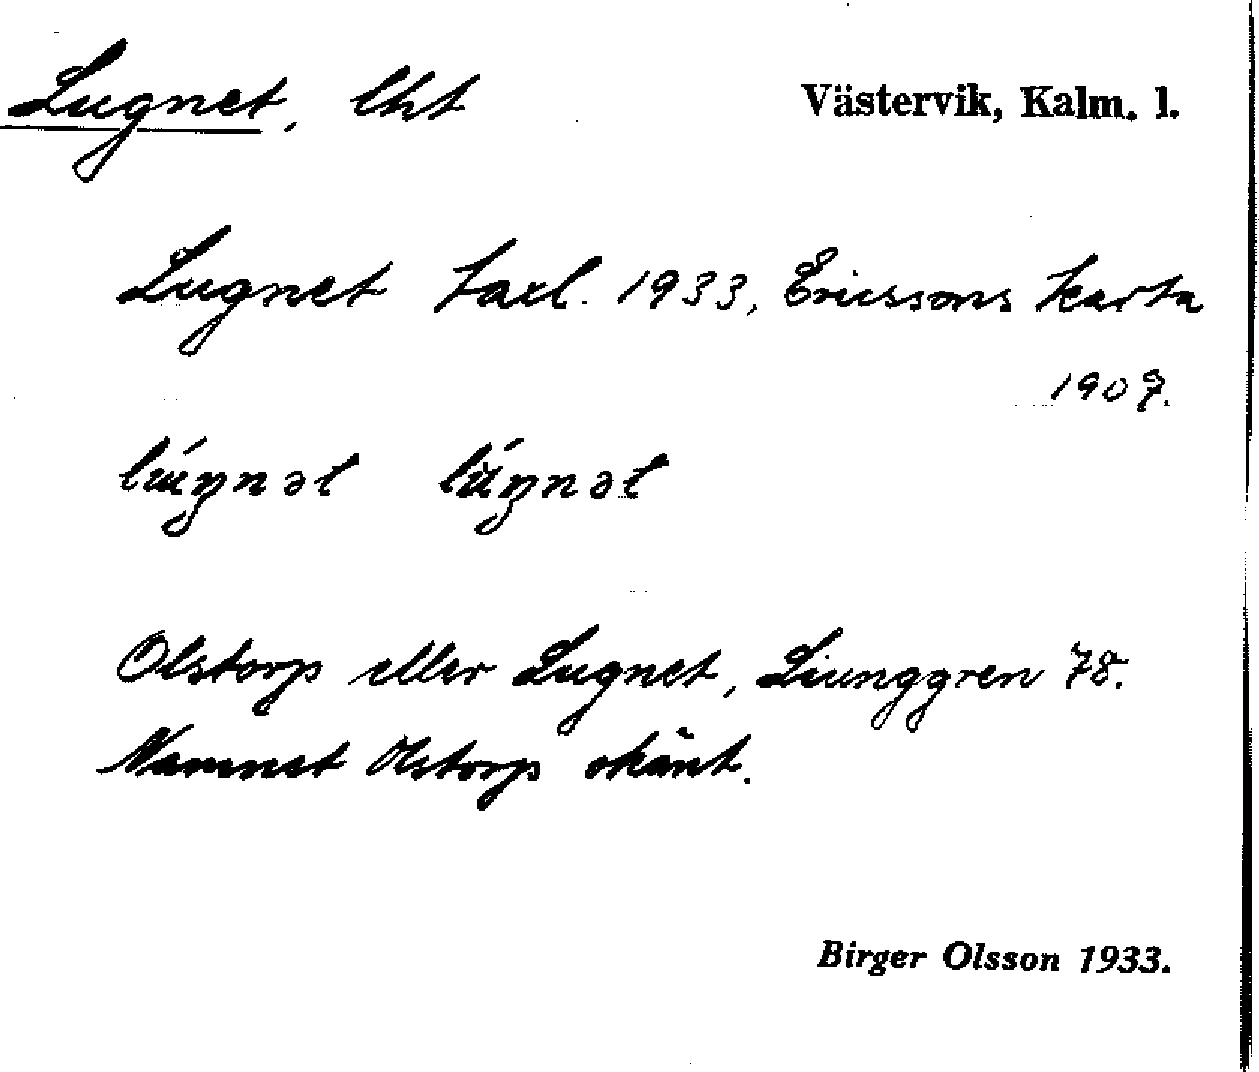 Lugnet, lht
Västervik, Kalm. l.
Lugnet taxl. 1933, Ericssons karta
1907.
Olstorp eller Lugnet, Liunggren 78.
Namnet Olstorp okänt.
Birger Olsson 1933.